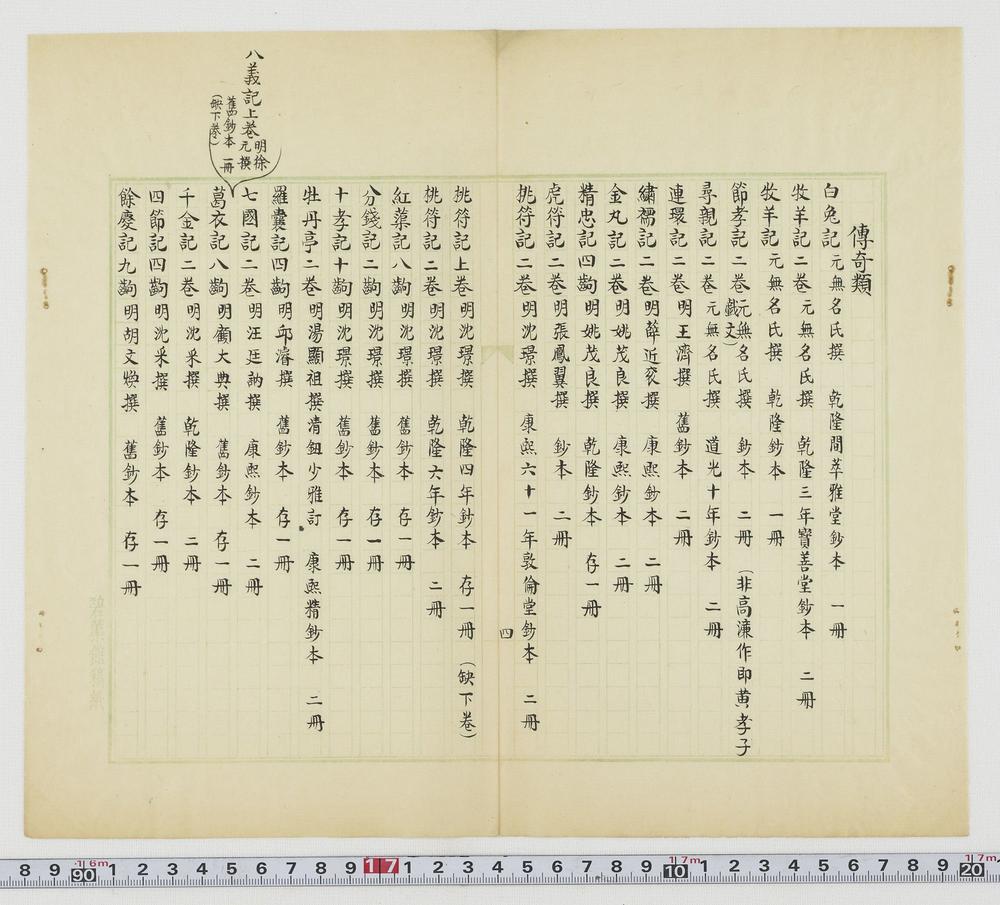 傳奇類
白兔記 元無名氏撰 乾隆間萃雅堂鈔本 一冊
牧羊記二卷 元無名氏撰 乾隆三年寶善堂鈔本 二冊
牧羊記 元無名氏撰 乾隆鈔本 一冊
節孝記二卷 元無名氏撰 鈔本 二冊 (非高濂作即黃孝子
戲文)
尋親記二卷 元無名氏撰 道光十年鈔本 二冊
連環記二卷 明王濟撰 舊鈔本 二冊
繡襦記二卷 明薛近兗撰 康熙鈔本 二冊
金丸記二卷 明姚茂良撰 康熙鈔本 二冊
精忠記四齣 明姚茂良撰 乾隆鈔本 存一冊
虎符記二卷 明張鳳翼撰 鈔本 二冊
桃符記二卷 明沈璟撰 康熙六十一年敦倫堂鈔本 二冊
四
桃符記上卷 明沈璟撰 乾隆四年鈔本 存一冊 (缺下卷)
桃符記二卷 明沈璟撰 乾隆六年鈔本 二冊
紅蕖記八齣 明沈璟撰 舊鈔本 存一冊
分錢記二齣 明沈璟撰 舊鈔本 存一冊
十孝記十齣 明沈璟撰 舊鈔本 存一冊
牡丹亭二卷 明湯顯祖撰清鈕少雅訂 康熙精鈔本 二冊
羅囊記四齣 明邱濬撰 舊鈔本 存一冊
七國記二卷 明汪廷訥撰 康熙鈔本 二冊
八義記上卷 明徐元撰 舊鈔本 一冊 (缺下卷)
葛衣記八齣 明顧大典撰 舊鈔本 存一冊
千金記二卷 明沈采撰 乾隆鈔本 二冊
四節記四齣 明沈采撰 舊鈔本 存一冊
餘慶記九齣 明胡文煥撰 舊鈔本 存一冊